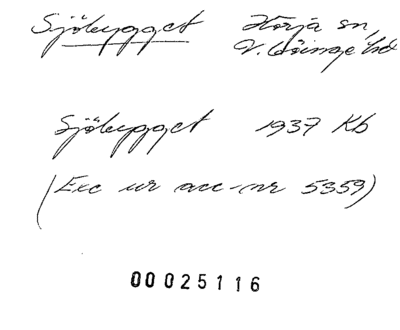 Sjöbygget Hörja sn,
V. Göinge hd
Sjöbygget 1937 Kb
(Exc ur acc-nr 5359)
00025116